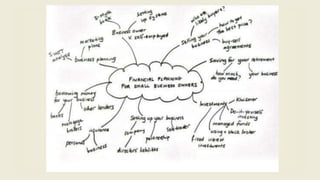 setting
up systems
who are
likely buyers?
how to get
the best price?
Business owner
v self-employed
Selling your
business
buy-sell
agreements
marketing
plans
SWOT
analysis
business planning
Saving for your retirement
how much
do you need?
your business
FINANCIAL PLANNING
FOR SMALL BUSINESS OWNERS
borrowing money
for your business
banks
other lenders
Investments
Kiwisaver
Do-it-yourself
investing
managed funds
using a share broker
fixed interest
investments
Setting up your business
sole trader
company
partnership
directors' liabilities
insurance
personal
business